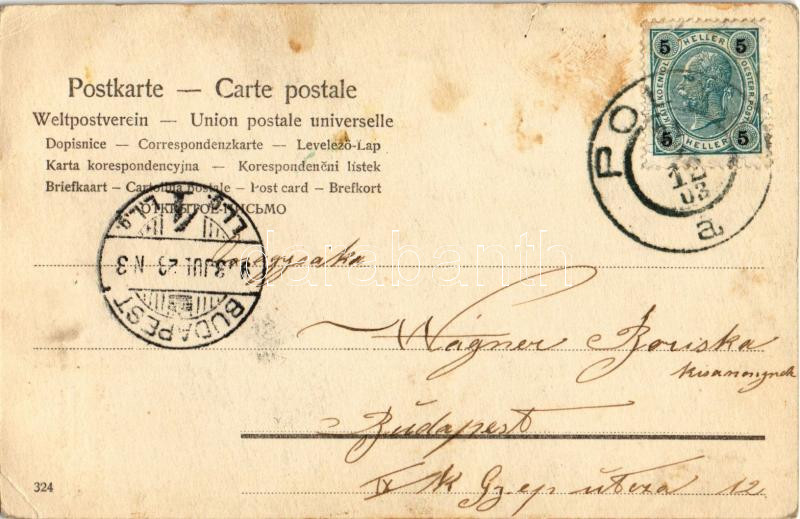 Postkarte — Carte postale
Weltpostverein — Union postale universelle
Dopisnice — Correspondenzkarte — Levelező-Lap
Karta korespondencyjna — Korespondenčni listek
Briefkaart — Cartolina postale — Post card — Brefkort
ОТКРЫТОЕ ПИСЬМО
5 HELLER 5
KAIS. KOENIGL. OESTERR. POST
5 HELLER 5
PO
12
03
a
BUDAPEST
903 JUL 23 N 3
Wágner Boriska
Budapest
IX K Gzep utcza 12
324
darabanth